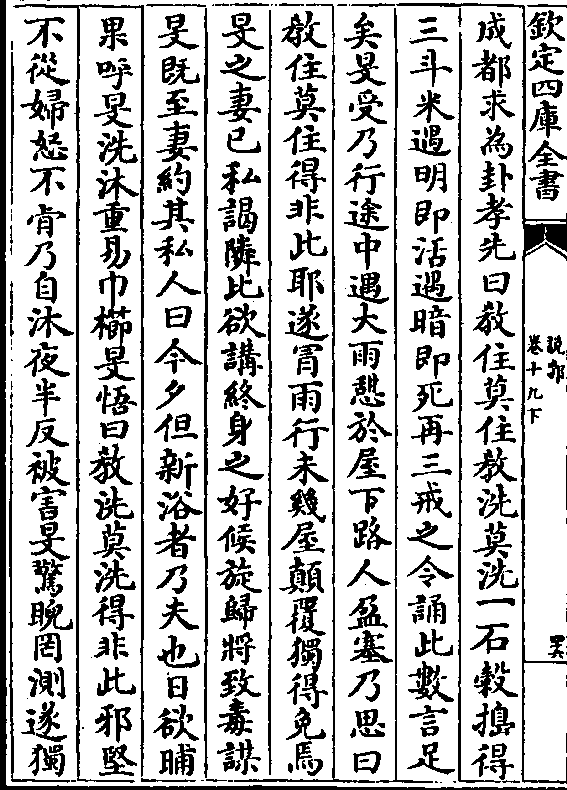 欽定四庫全書
說郛
卷十九下
成都求為卦孝先曰教住莫住教洗莫洗一石穀搗得
三斗米遇明即活遇暗即死再三戒之令誦此數言足
矣旻受乃行途中遇大雨憇於屋下路人盈塞乃思曰
教住莫住得非此耶遂冐雨行未幾屋顛覆獨得免焉
旻之妻已私謁隣比欲講終身之好候旋歸將致毒謀
旻既至妻約其私人曰今夕但新浴者乃夫也日欲晡
果呼旻洗沐重易巾櫛旻悟曰教洗莫洗得非此邪堅
不從婦怒不肯乃自沐夜半反被害旻驚睨罔測遂獨